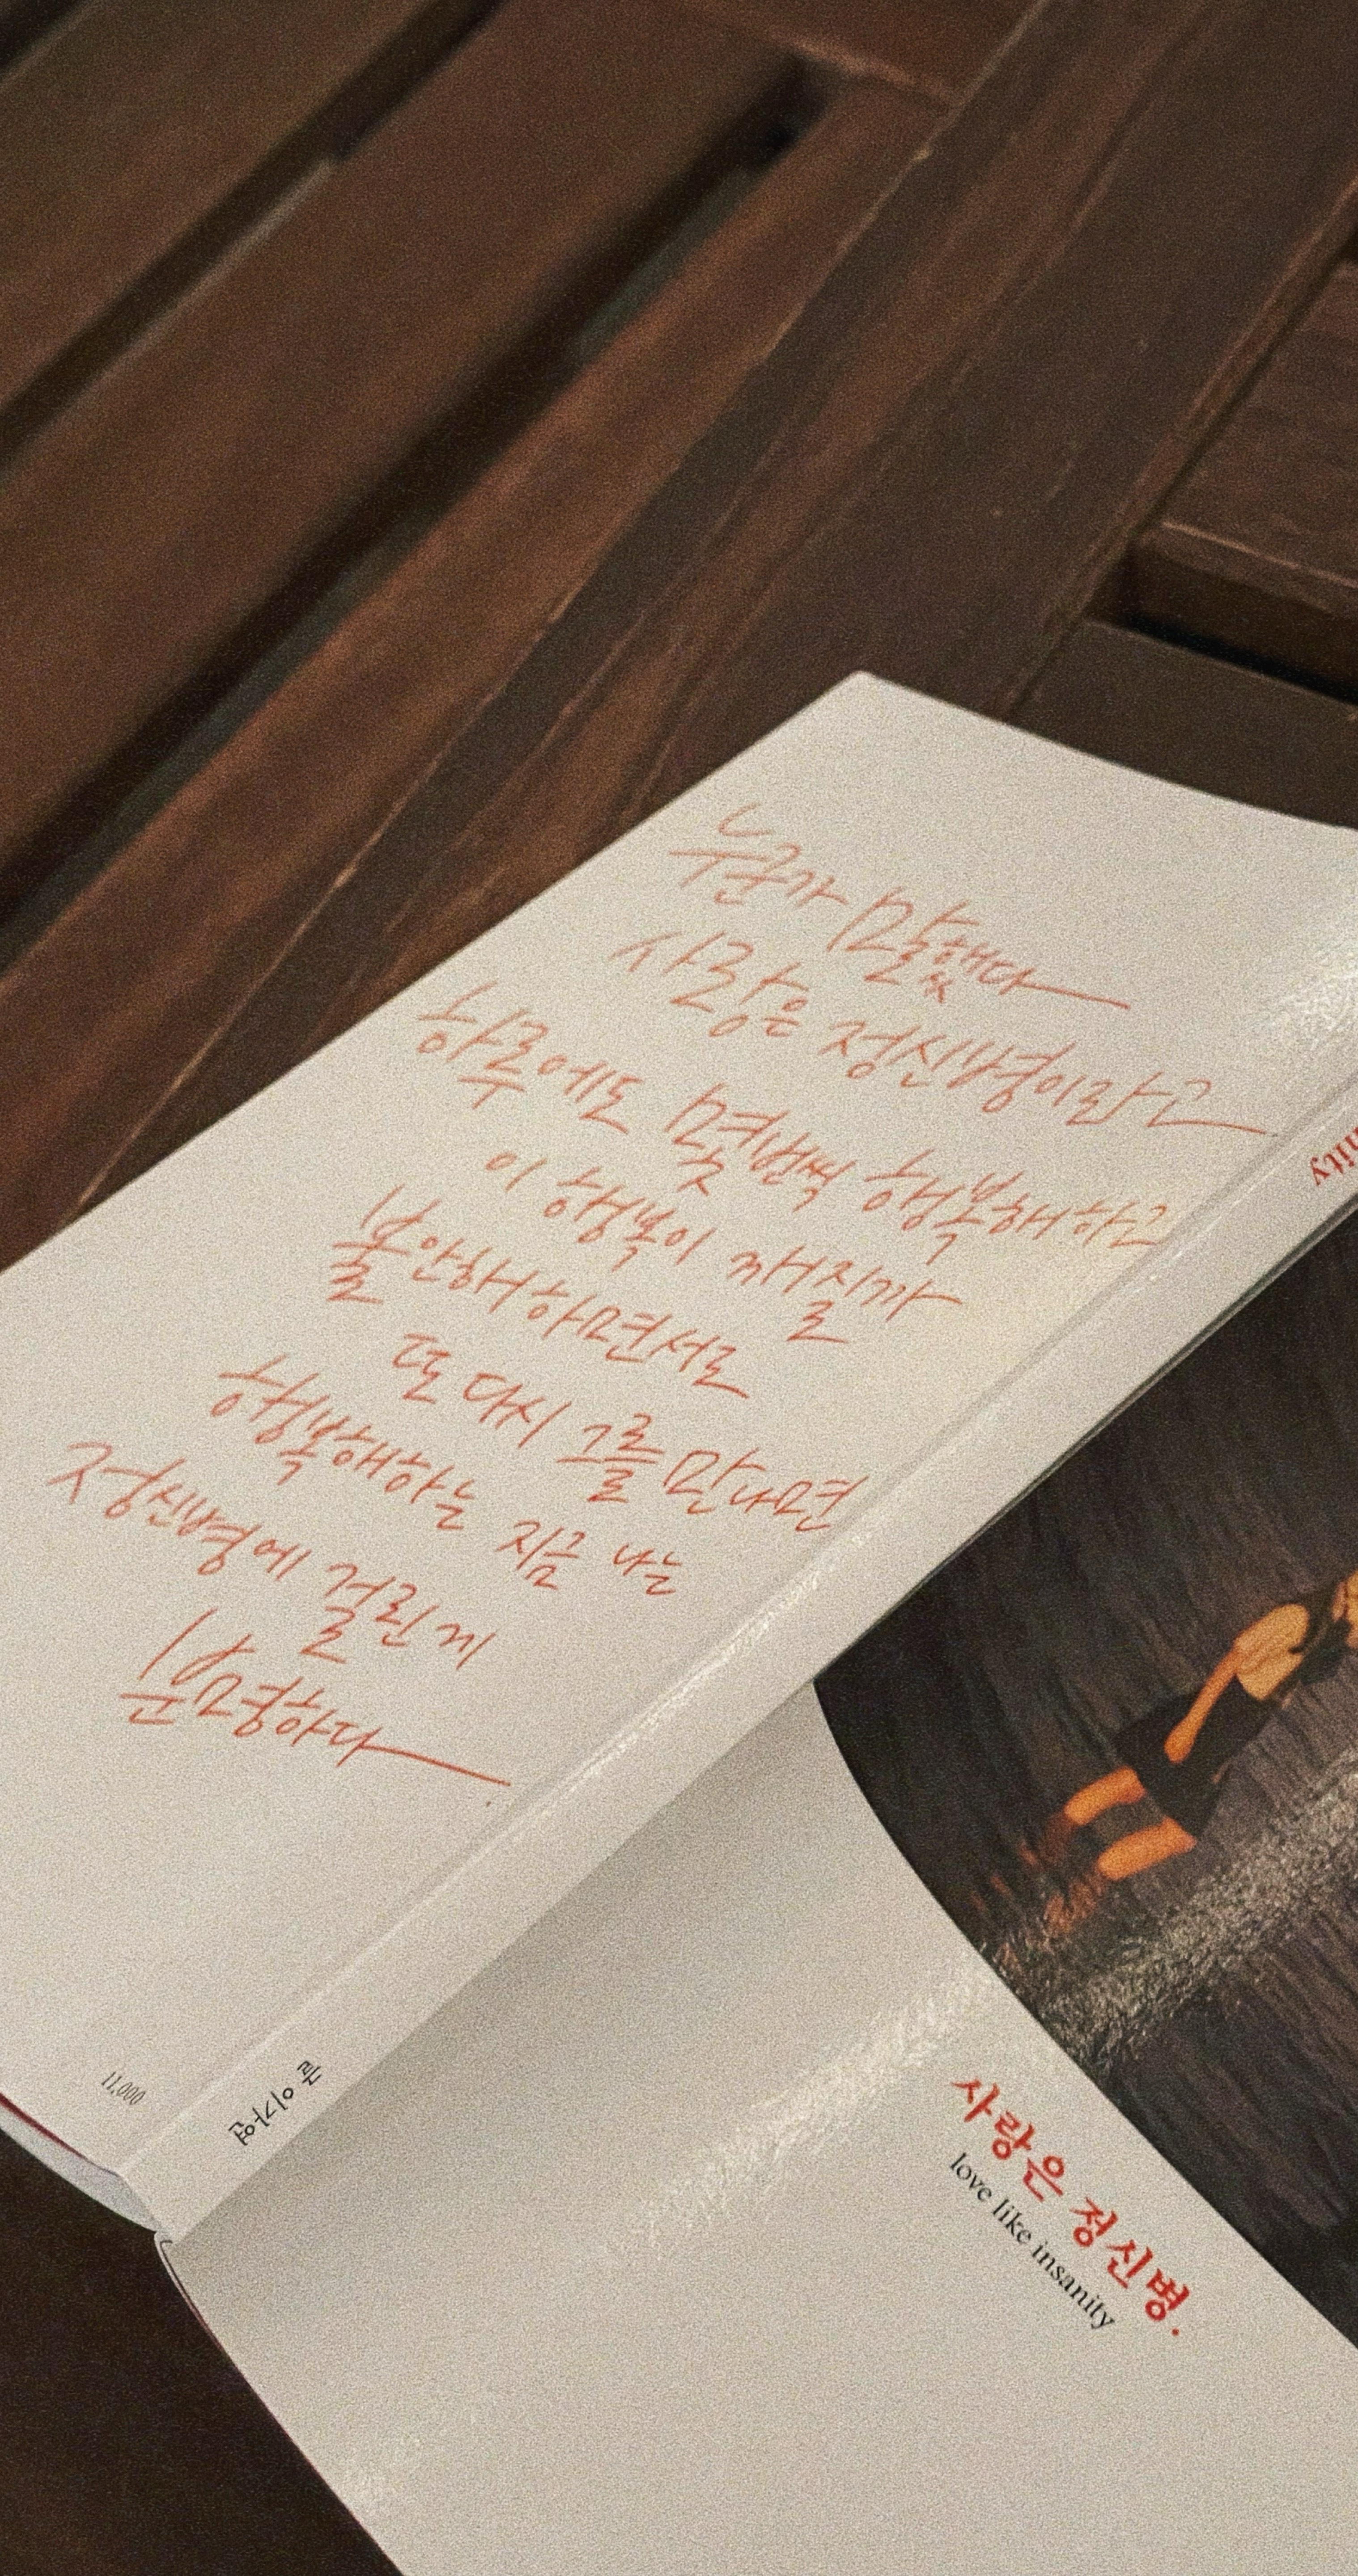 누군가 말했다
사랑은 정신병이라고
하루에도 몇번씩 행복해하고
이 행복이 깨질까
불안해하면서도
또 다시 그를 만나면
행복해하는 지금 나는
정신병에 걸린 게
분명하다
11,000
글 이가연
nity
사랑은 정신병.
love like insanity